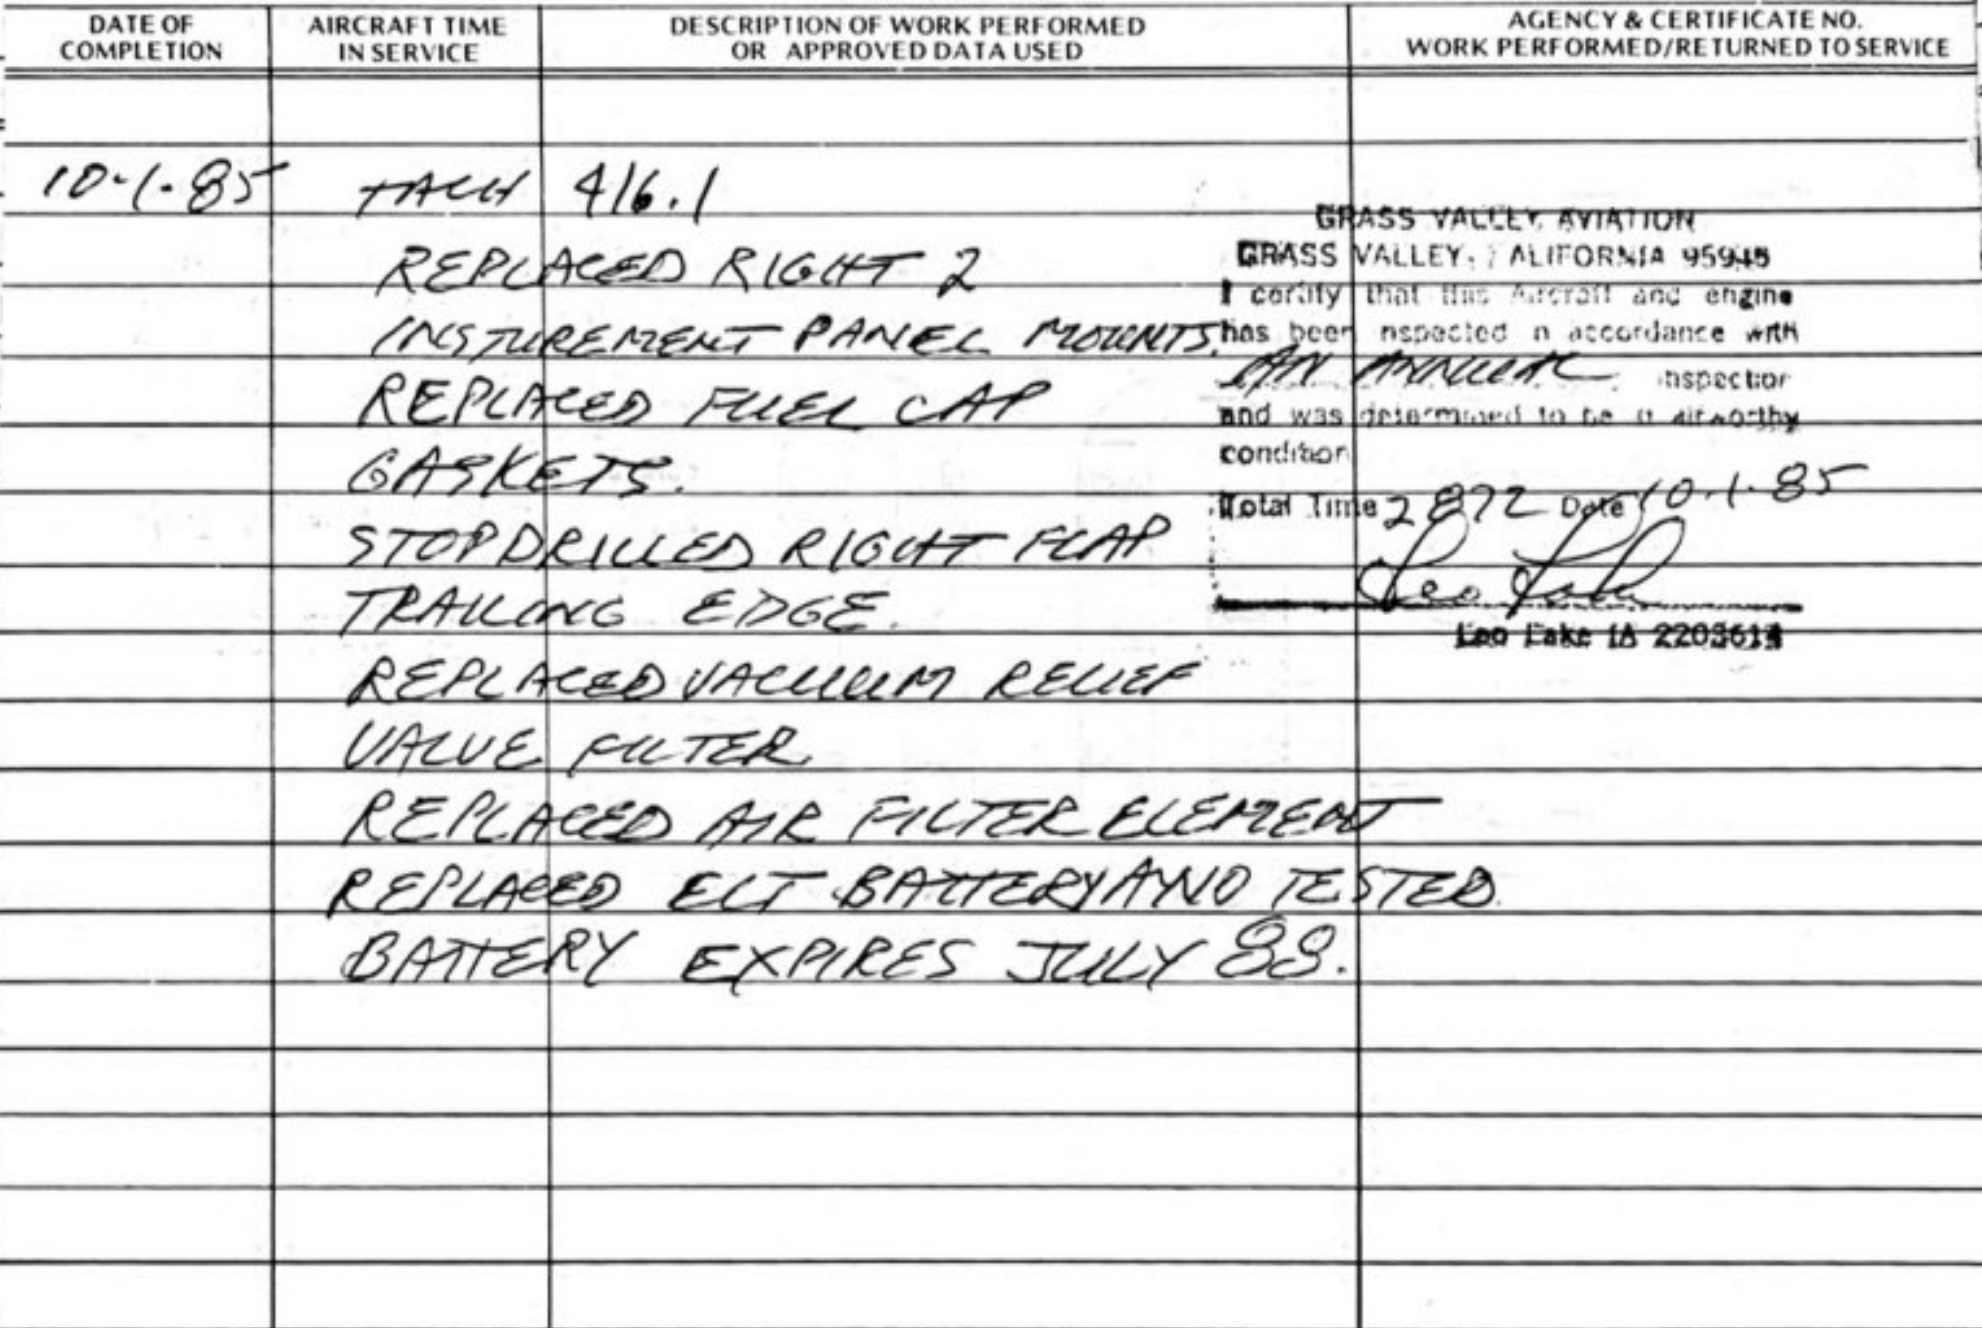 DATE OF COMPLETION
AIRCRAFT TIME IN SERVICE
DESCRIPTION OF WORK PERFORMED OR APPROVED DATA USED
AGENCY & CERTIFICATE NO. WORK PERFORMED/RETURNED TO SERVICE
10-1-85 TACH 416.1
REPLACED RIGHT 2
INSTUREMENT PANEL MOUNTS.
REPLACED FUEL CAP
GASKETS.
STOPDRILLED RIGHT FLAP
TRAILING EDGE.
REPLACED VACUUM RELIEF
VALVE FILTER
REPLACED AIR FILTER ELEMENT
REPLACED ELT BATTERY AND TESTED.
BATTERY EXPIRES JULY 88.
GRASS VALLEY AVIATION
GRASS VALLEY, CALIFORNIA 95945
I certify that this Aircraft and engine
has been inspected in accordance with
AN ANNUAL inspection
and was determined to be in airworthy
condition
Total Time 2872 Date 10-1-85
Leo Lake
Leo Lake IA 2203614